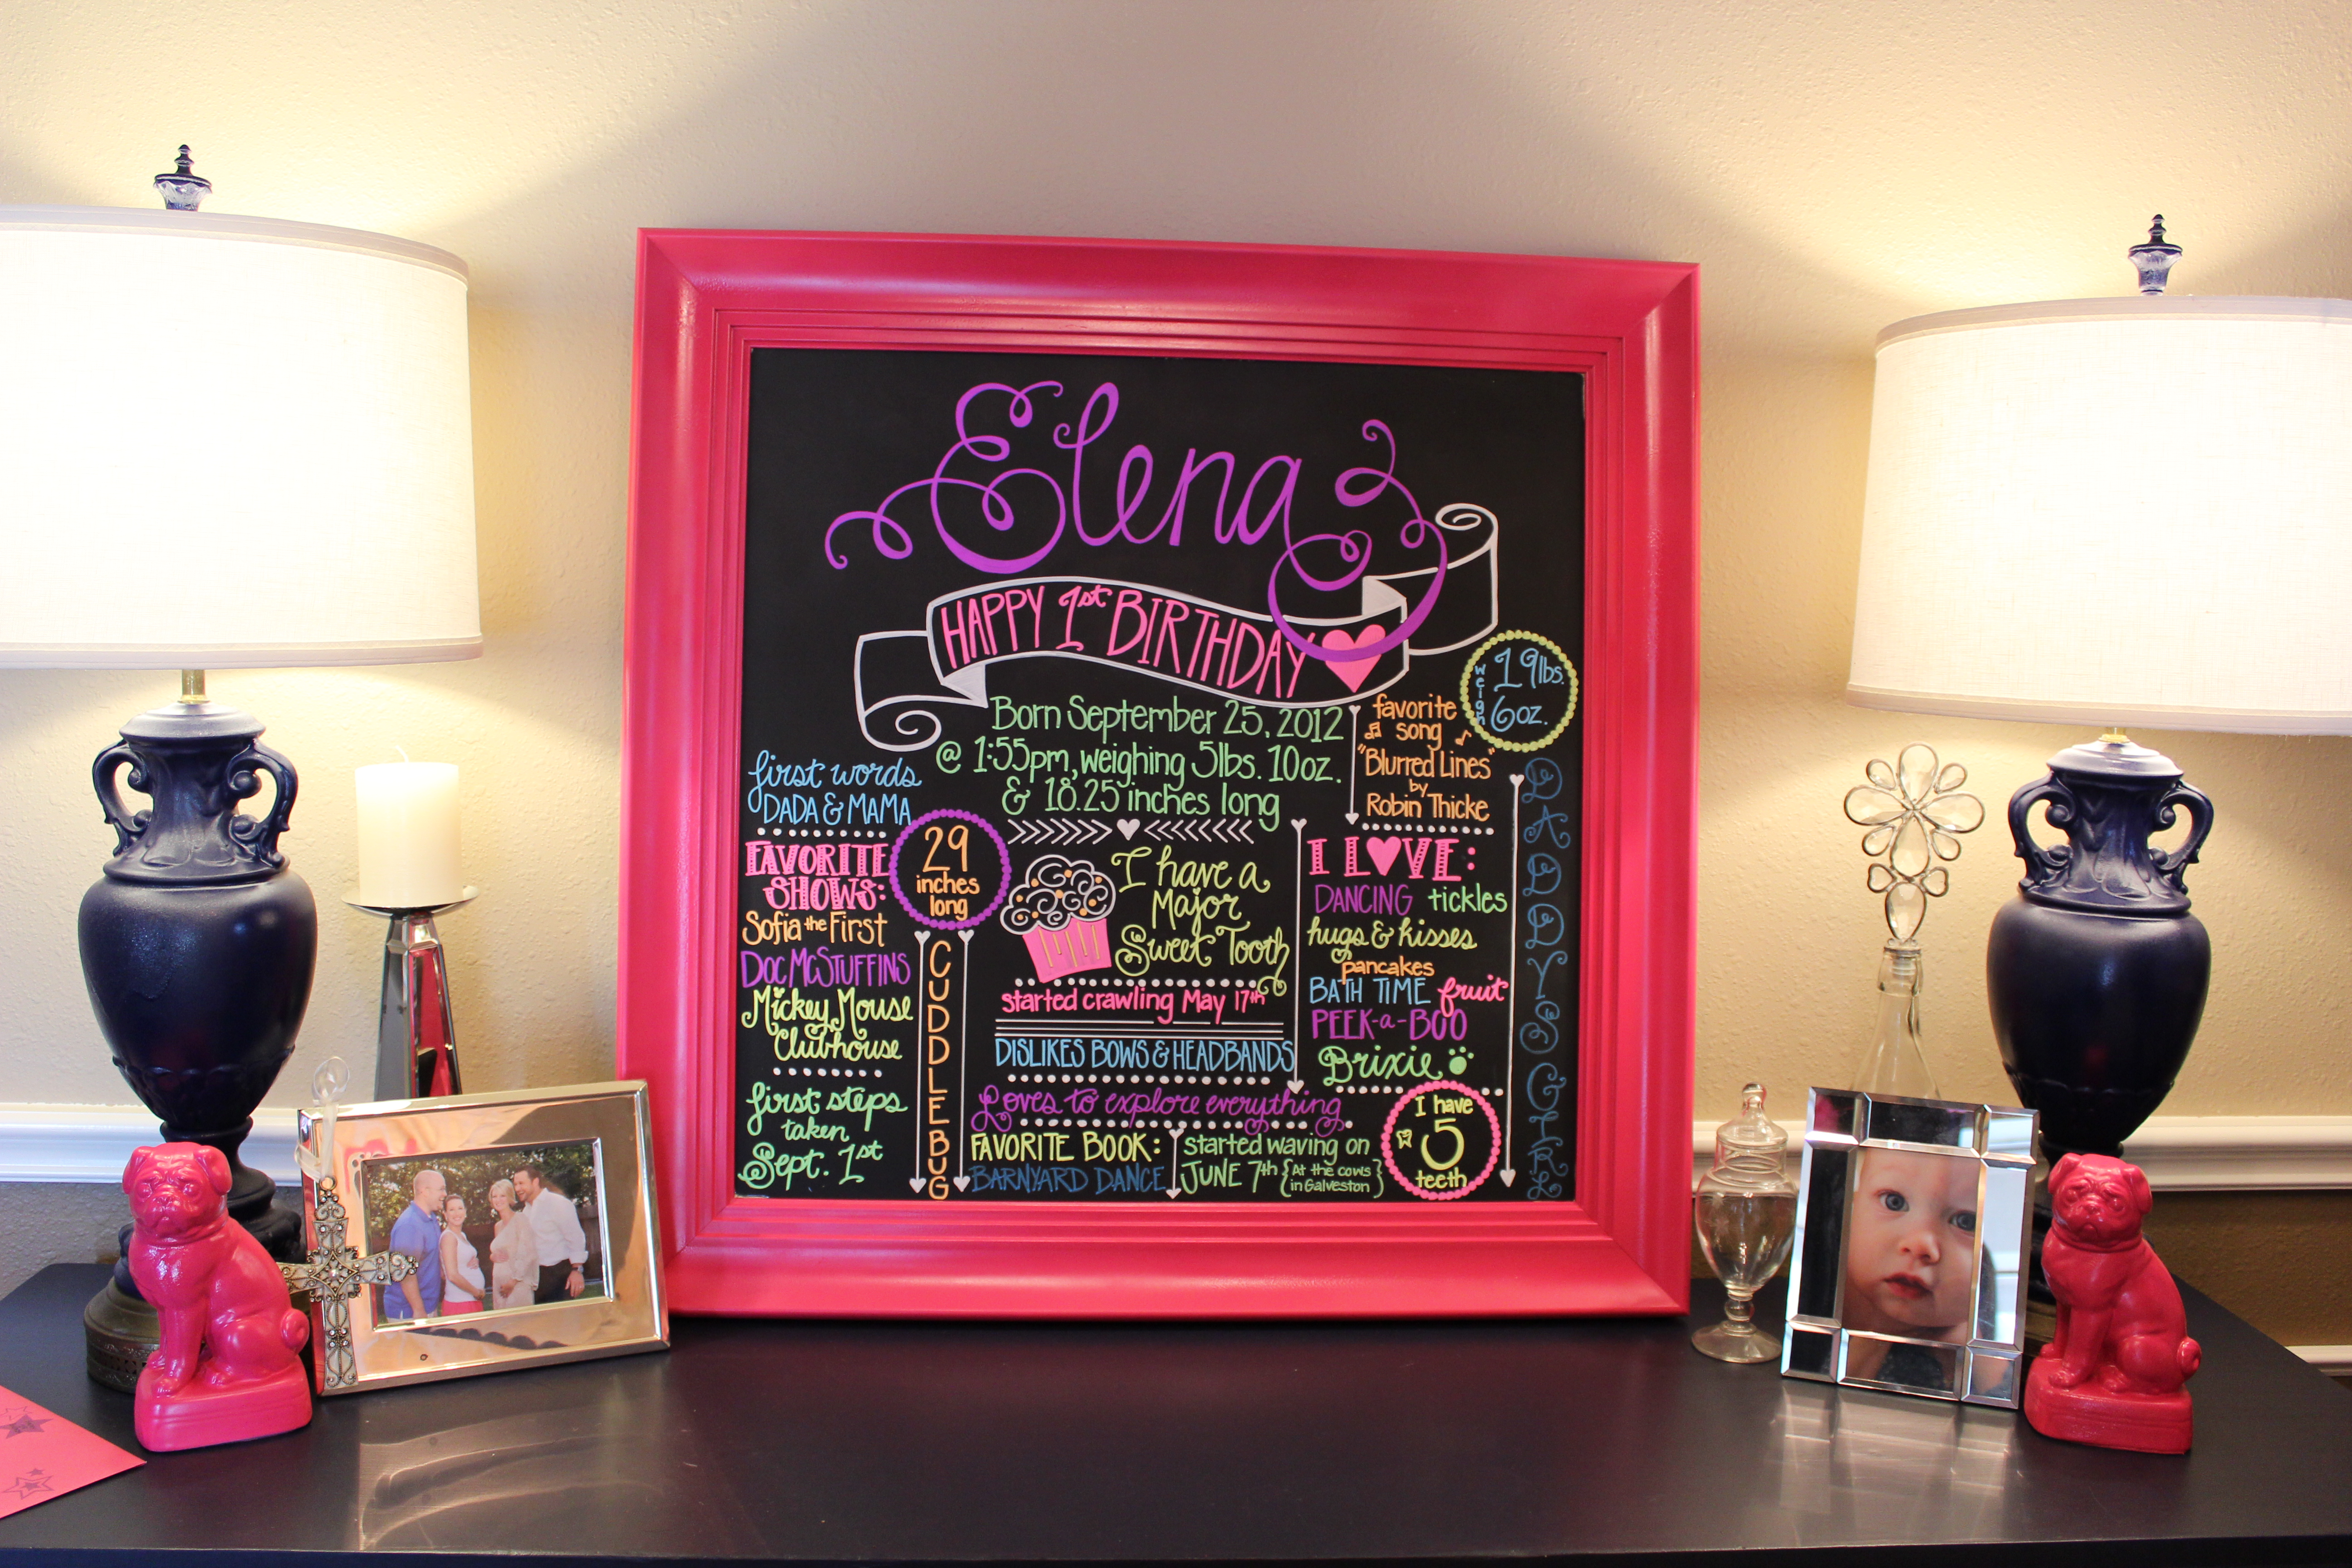 Elena
HAPPY 1st BIRTHDAY
weigh
19lbs.
6oz.
Born September 25, 2012
@ 1:55pm, weighing 5lbs. 10oz.
& 18.25 inches long
favorite
song
"Blurred Lines"
by
Robin Thicke
first words
DADA & MAMA
29
inches
long
FAVORITE
SHOWS:
Sofia the First
DOC MCSTUFFINS
Mickey Mouse
Clubhouse
first steps
taken
Sept. 1st
CUDDLE BUG
I have a
Major
Sweet Tooth
started crawling May 17th
DISLIKES BOWS & HEADBANDS
Loves to explore everything
FAVORITE BOOK:
BARNYARD DANCE
started waving on
JUNE 7th {At the cows
in Galveston}
I LOVE:
DANCING tickles
hugs & kisses
pancakes
BATH TIME fruit
PEEK-a-BOO
Brixie
I have
5
teeth
DADDYS GIRL